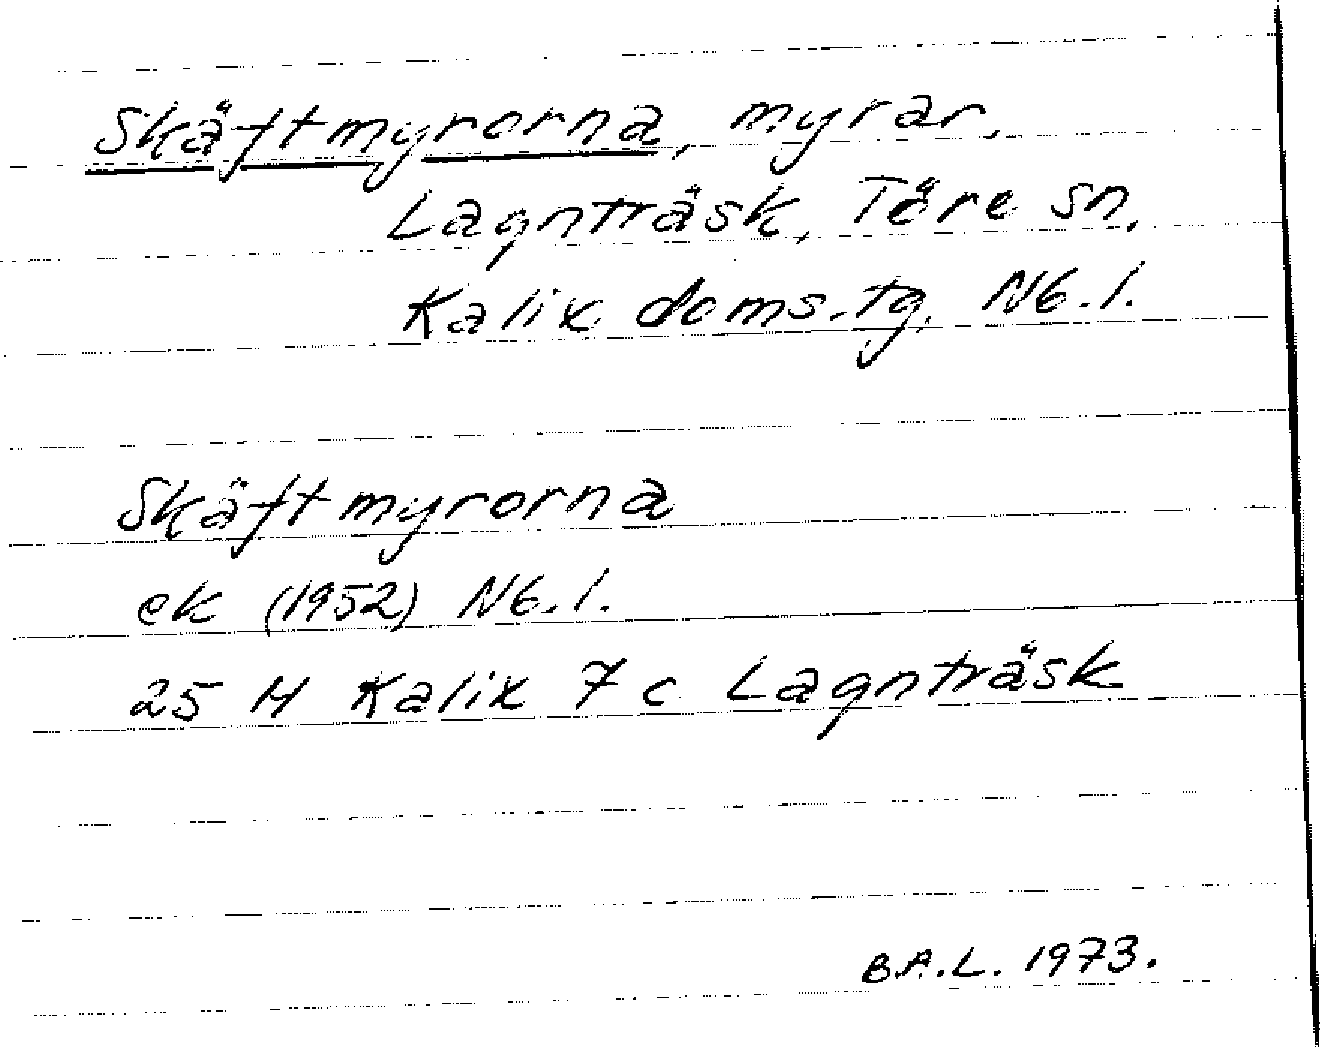 Skäftmyrorna, myrar.
Lagnträsk, Töre sn.
Kalix doms.tg. Nb.l.
Skäftmyrorna
ek (1952) Nb.l.
25 M Kalix 7 c Lagnträsk
B.A.L. 1973.